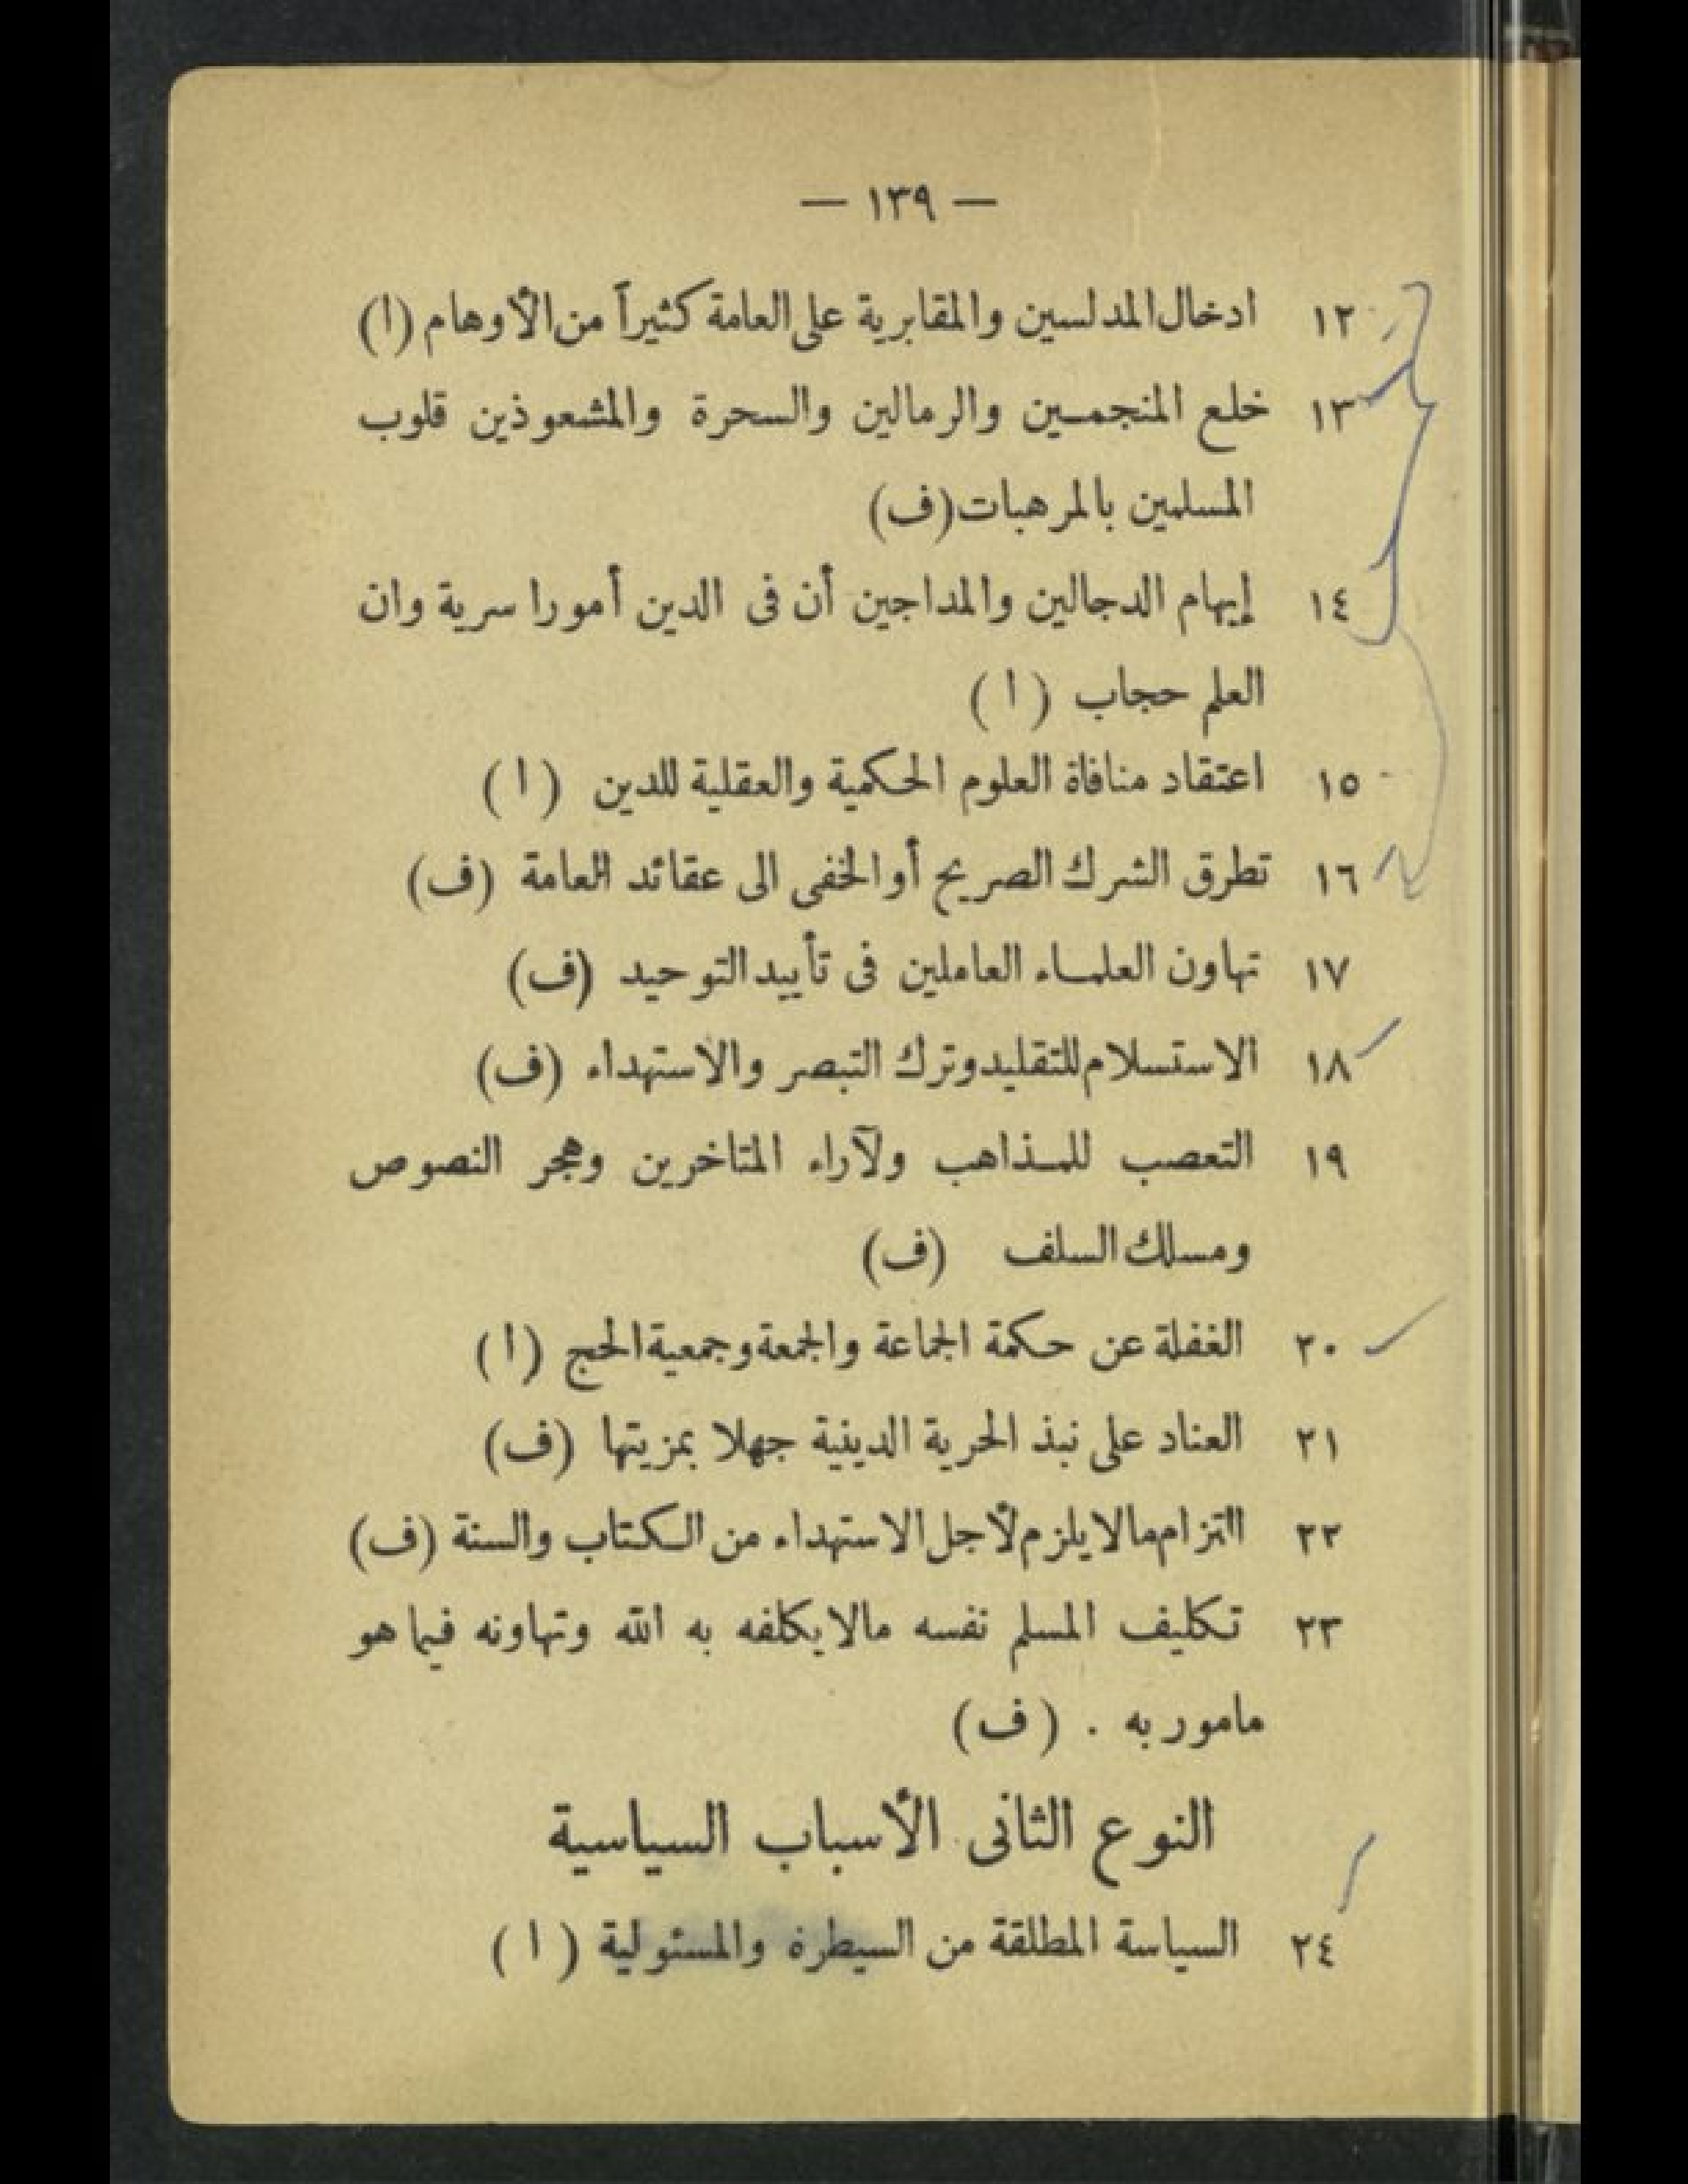 — ١٣٩ —
١٢ ادخال المدلسين والمقابرية على العامة كثيراً من الأوهام (ا)
١٣ خلع المنجمين والرمالين والسحرة والمشعوذين قلوب
المسلمين بالمرهبات (ف)
١٤ إيهام الدجالين والمداجين أن فى الدين أمورا سرية وان
العلم حجاب (ا)
١٥ اعتقاد منافاة العلوم الحكمية والعقلية للدين (ا)
١٦ تطرق الشرك الصريح أو الخفى الى عقائد العامة (ف)
١٧ تهاون العلماء العاملين فى تأييد التوحيد (ف)
١٨ الاستسلام للتقليد وترك التبصر والاستهداء (ف)
١٩ التعصب للمذاهب ولآراء المتاخرين وهجر النصوص
ومسلك السلف (ف)
٢٠ الغفلة عن حكمة الجماعة والجمعة وجمعية الحج (ا)
٢١ العناد على نبذ الحرية الدينية جهلا بمزيتها (ف)
٢٢ التزام مالا يلزم لأجل الاستهداء من الكتاب والسنة (ف)
٢٣ تكليف المسلم نفسه مالا يكلفه به الله وتهاونه فيما هو
مامور به . (ف)
النوع الثانى الأسباب السياسية
٢٤ السياسة المطلقة من السيطرة والمسئولية (ا)